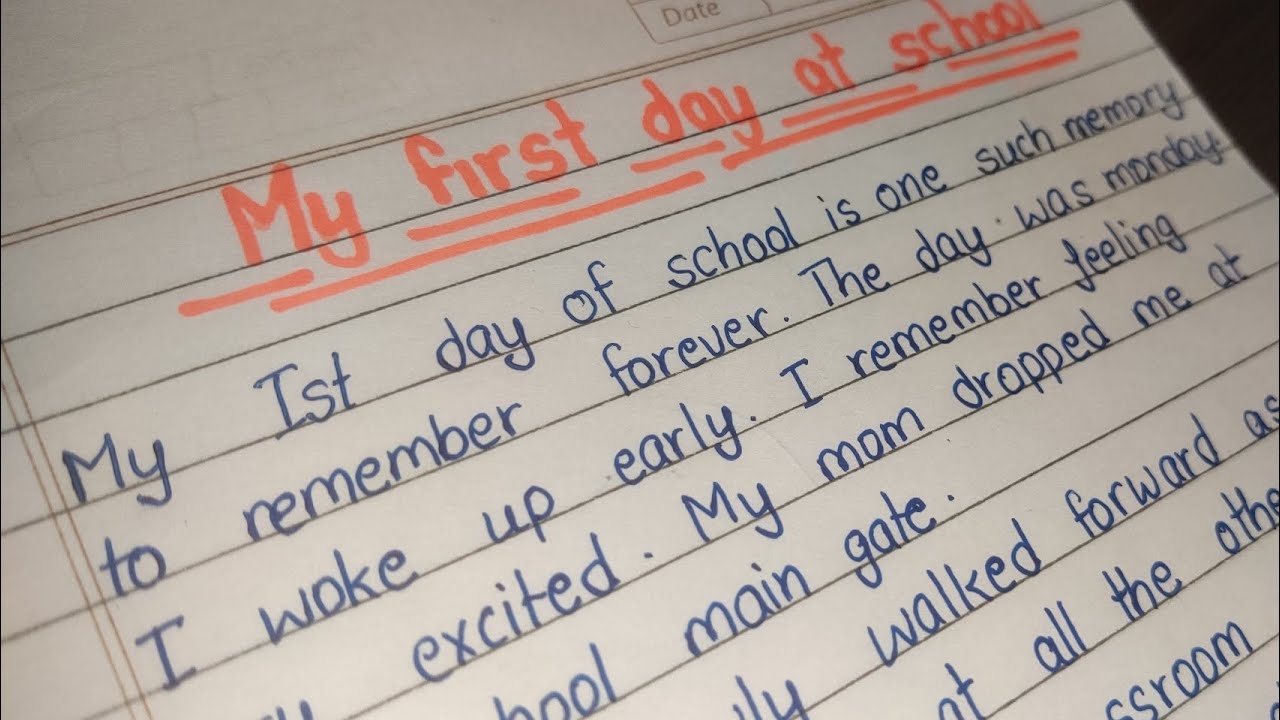 Date
My first day at school
My Ist day of school is one such memory
to remember forever. The day was monday
I woke up early. I remember feeling
excited. My mom dropped me at
main gate.
walked forward as
all the